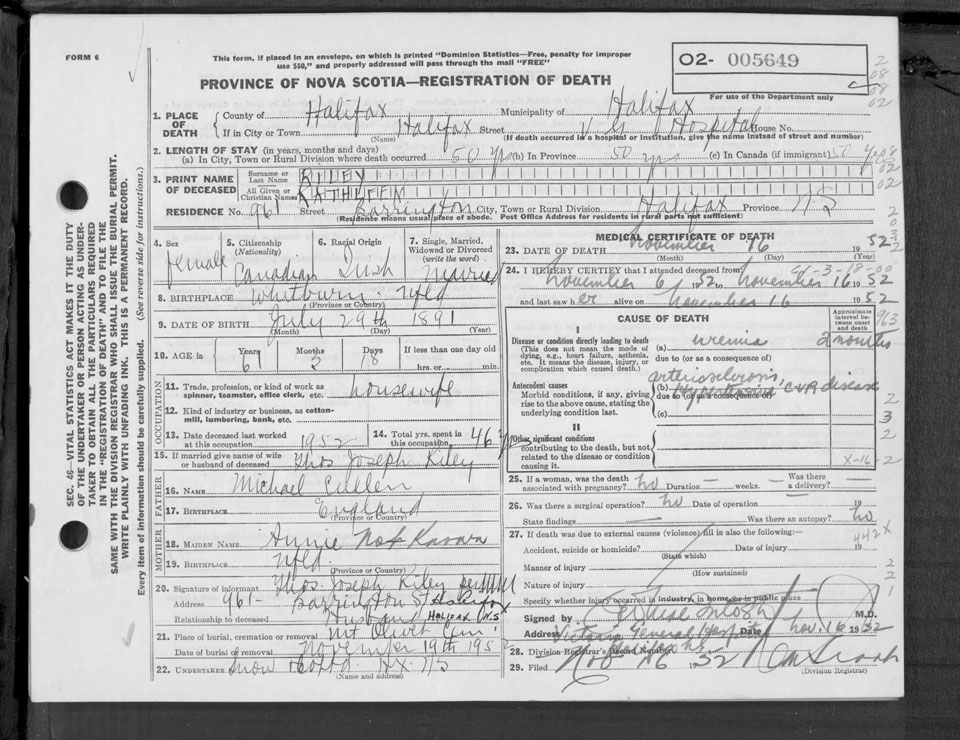 FORM 6
This form, if placed in an envelope, on which is printed "Dominion Statistics—Free, penalty for improper
use $50," and properly addressed will pass through the mail "FREE"
PROVINCE OF NOVA SCOTIA—REGISTRATION OF DEATH
O2- 005649
For use of the Department only
SEC. 46—VITAL STATISTICS ACT MAKES IT THE DUTY
OF THE UNDERTAKER OR PERSON ACTING AS UNDER-
TAKER TO OBTAIN ALL THE PARTICULARS REQUIRED
IN THE "REGISTRATION OF DEATH" AND TO FILE THE
SAME WITH THE DIVISION REGISTRAR WHO SHALL ISSUE THE BURIAL PERMIT.
WRITE PLAINLY WITH UNFADING INK. THIS IS A PERMANENT RECORD.
Every item of information should be carefully supplied. (See reverse side for instructions.)
1. PLACE OF DEATH
County of Halifax Municipality of Halifax
If in City or Town Halifax Street V. G. Hospital House No.
(Name) (If death occurred in a hospital or institution, give the name instead of street and number)
2. LENGTH OF STAY (in years, months and days)
(a) In City, Town or Rural Division where death occurred 50 yrs (b) In Province 50 yrs (c) In Canada (if immigrant) 50 yrs
3. PRINT NAME OF DECEASED
Surname or Last Name RILEY
All Given or Christian Names KATHLEEN
RESIDENCE No. 961 Street Barrington City, Town or Rural Division Halifax Province NS
(Residence means usual place of abode. Post Office Address for residents in rural parts not sufficient)
4. Sex female
5. Citizenship (Nationality) Canadian
6. Racial Origin Irish
7. Single, Married, Widowed or Divorced (write the word) Married
8. BIRTHPLACE Whitburn Nfld
(Province or Country)
9. DATE OF BIRTH July 29th 1891
(Month) (Day) (Year)
10. AGE in Years 61 Months 3 Days 18 If less than one day old hrs. or min.
OCCUPATION
11. Trade, profession, or kind of work as spinner, teamster, office clerk, etc. housewife
12. Kind of industry or business, as cotton-mill, lumbering, bank, etc.
13. Date deceased last worked at this occupation 1952
14. Total yrs. spent in this occupation 46 yrs
15. If married give name of wife or husband of deceased Thos Joseph Riley
FATHER
16. NAME Michael Cullen
17. BIRTHPLACE England
(Province or Country)
MOTHER
18. MAIDEN NAME Annie Not Known
19. BIRTHPLACE Nfld.
(Province or Country)
20. Signature of informant Thos. Joseph Riley
Address 961- Barrington St Halifax
Relationship to deceased Husband HALIFAX N.S
21. Place of burial, cremation or removal Mt Olivet Cem
Date of burial or removal November 19th 1952
22. UNDERTAKER Snow & Co Ltd. Hx. NS
(Name and address)
MEDICAL CERTIFICATE OF DEATH
23. DATE OF DEATH November 16 1952
(Month) (Day) (Year)
24. I HEREBY CERTIFY that I attended deceased from
November 6 1952 to November 16 1952
and last saw her alive on November 16 1952
CAUSE OF DEATH
Approximate interval between onset and death
I
Disease or condition directly leading to death
(This does not mean the mode of dying, e.g., heart failure, asthenia, etc. It means the disease, injury, or complication which caused death.)
(a) uremia 2 months
due to (or as a consequence of)
Antecedent causes
Morbid conditions, if any, giving rise to the above cause, stating the underlying condition last.
(b) arteriosclerosis,
due to (or as a consequence of) CVR disease
(c)
II
Other significant conditions
contributing to the death, but not related to the disease or condition causing it.
X-16-2
25. If a woman, was the death associated with pregnancy? no Duration — weeks. Was there a delivery? —
26. Was there a surgical operation? no Date of operation — 19
State findings — Was there an autopsy? no
27. If death was due to external causes (violence) fill in also the following:—
442X
Accident, suicide or homicide? Date of injury 19
(State which)
Manner of injury
(How sustained)
Nature of injury
Specify whether injury occurred in industry, in home, or in public place
Signed by M.D.
Address Victoria General Hospital Date Nov. 16 1952
28. Division Registrar's Record Number
29. Filed Nov 26 1952
(Division Registrar)